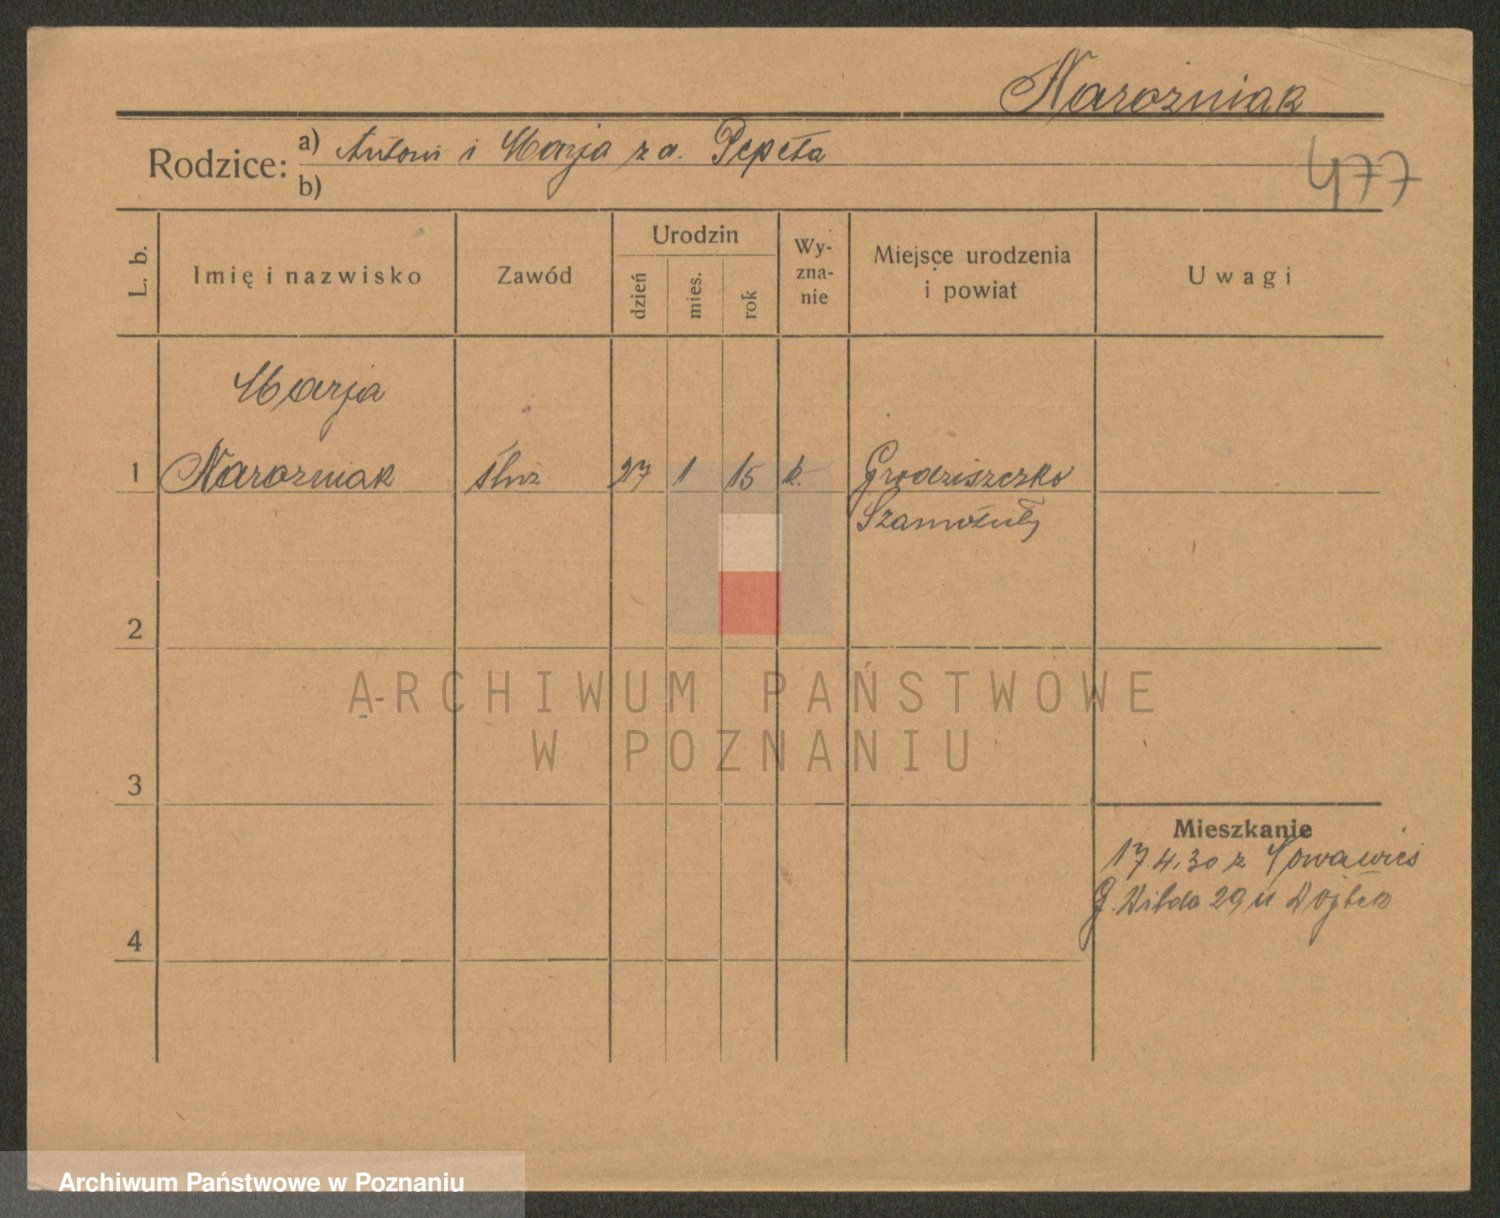 Narożniak
Rodzice: a) Antoni i Marja z d. Pepeta
477
b)
L. b.
Imię i nazwisko
Zawód
Urodzin
dzień
mies.
rok
Wy-
zna-
nie
Miejsce urodzenia
i powiat
Uwagi
Marja
1 Narozniak służ 27 1 15 k. Grodziszczko
Szamotuły
2
ARCHIWUM PAŃSTWOWE
W POZNANIU
3
Mieszkanie
17 4.30 z Nowawieś
G. Wilda 29 u Wojtek
4
Archiwum Państwowe w Poznaniu